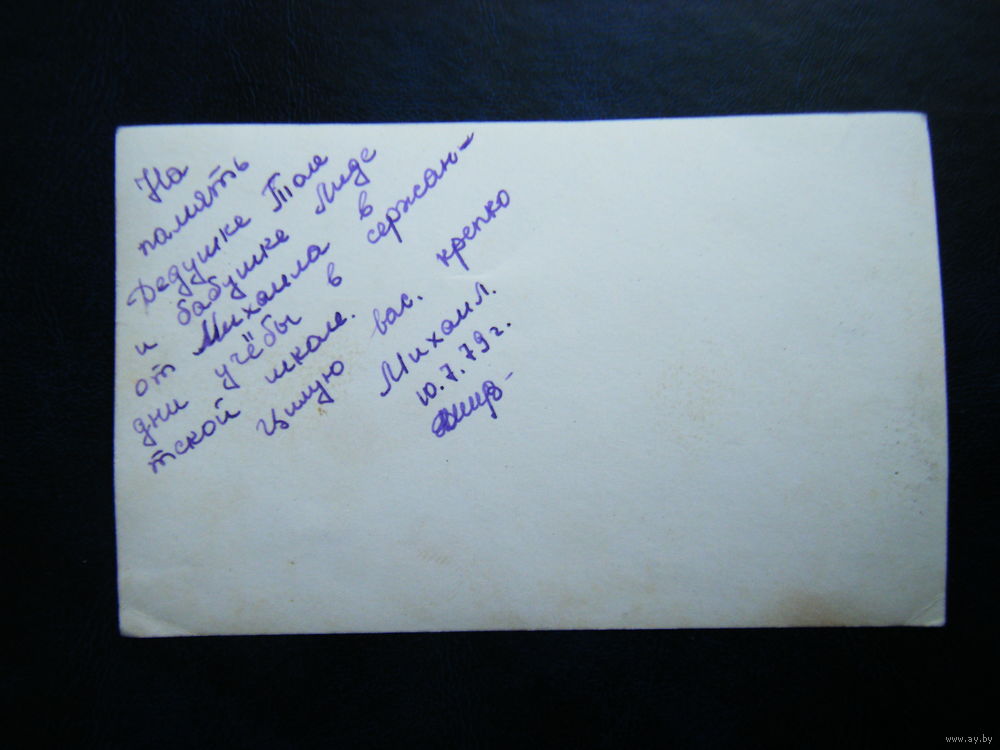 На
память
Дедушке Толе
и бабушке Лиде
от Михаила в
дни учёбы в сержан-
тской школе.
Цилую вас. крепко
Михаил.
10.7.79 г.
www.ay.by